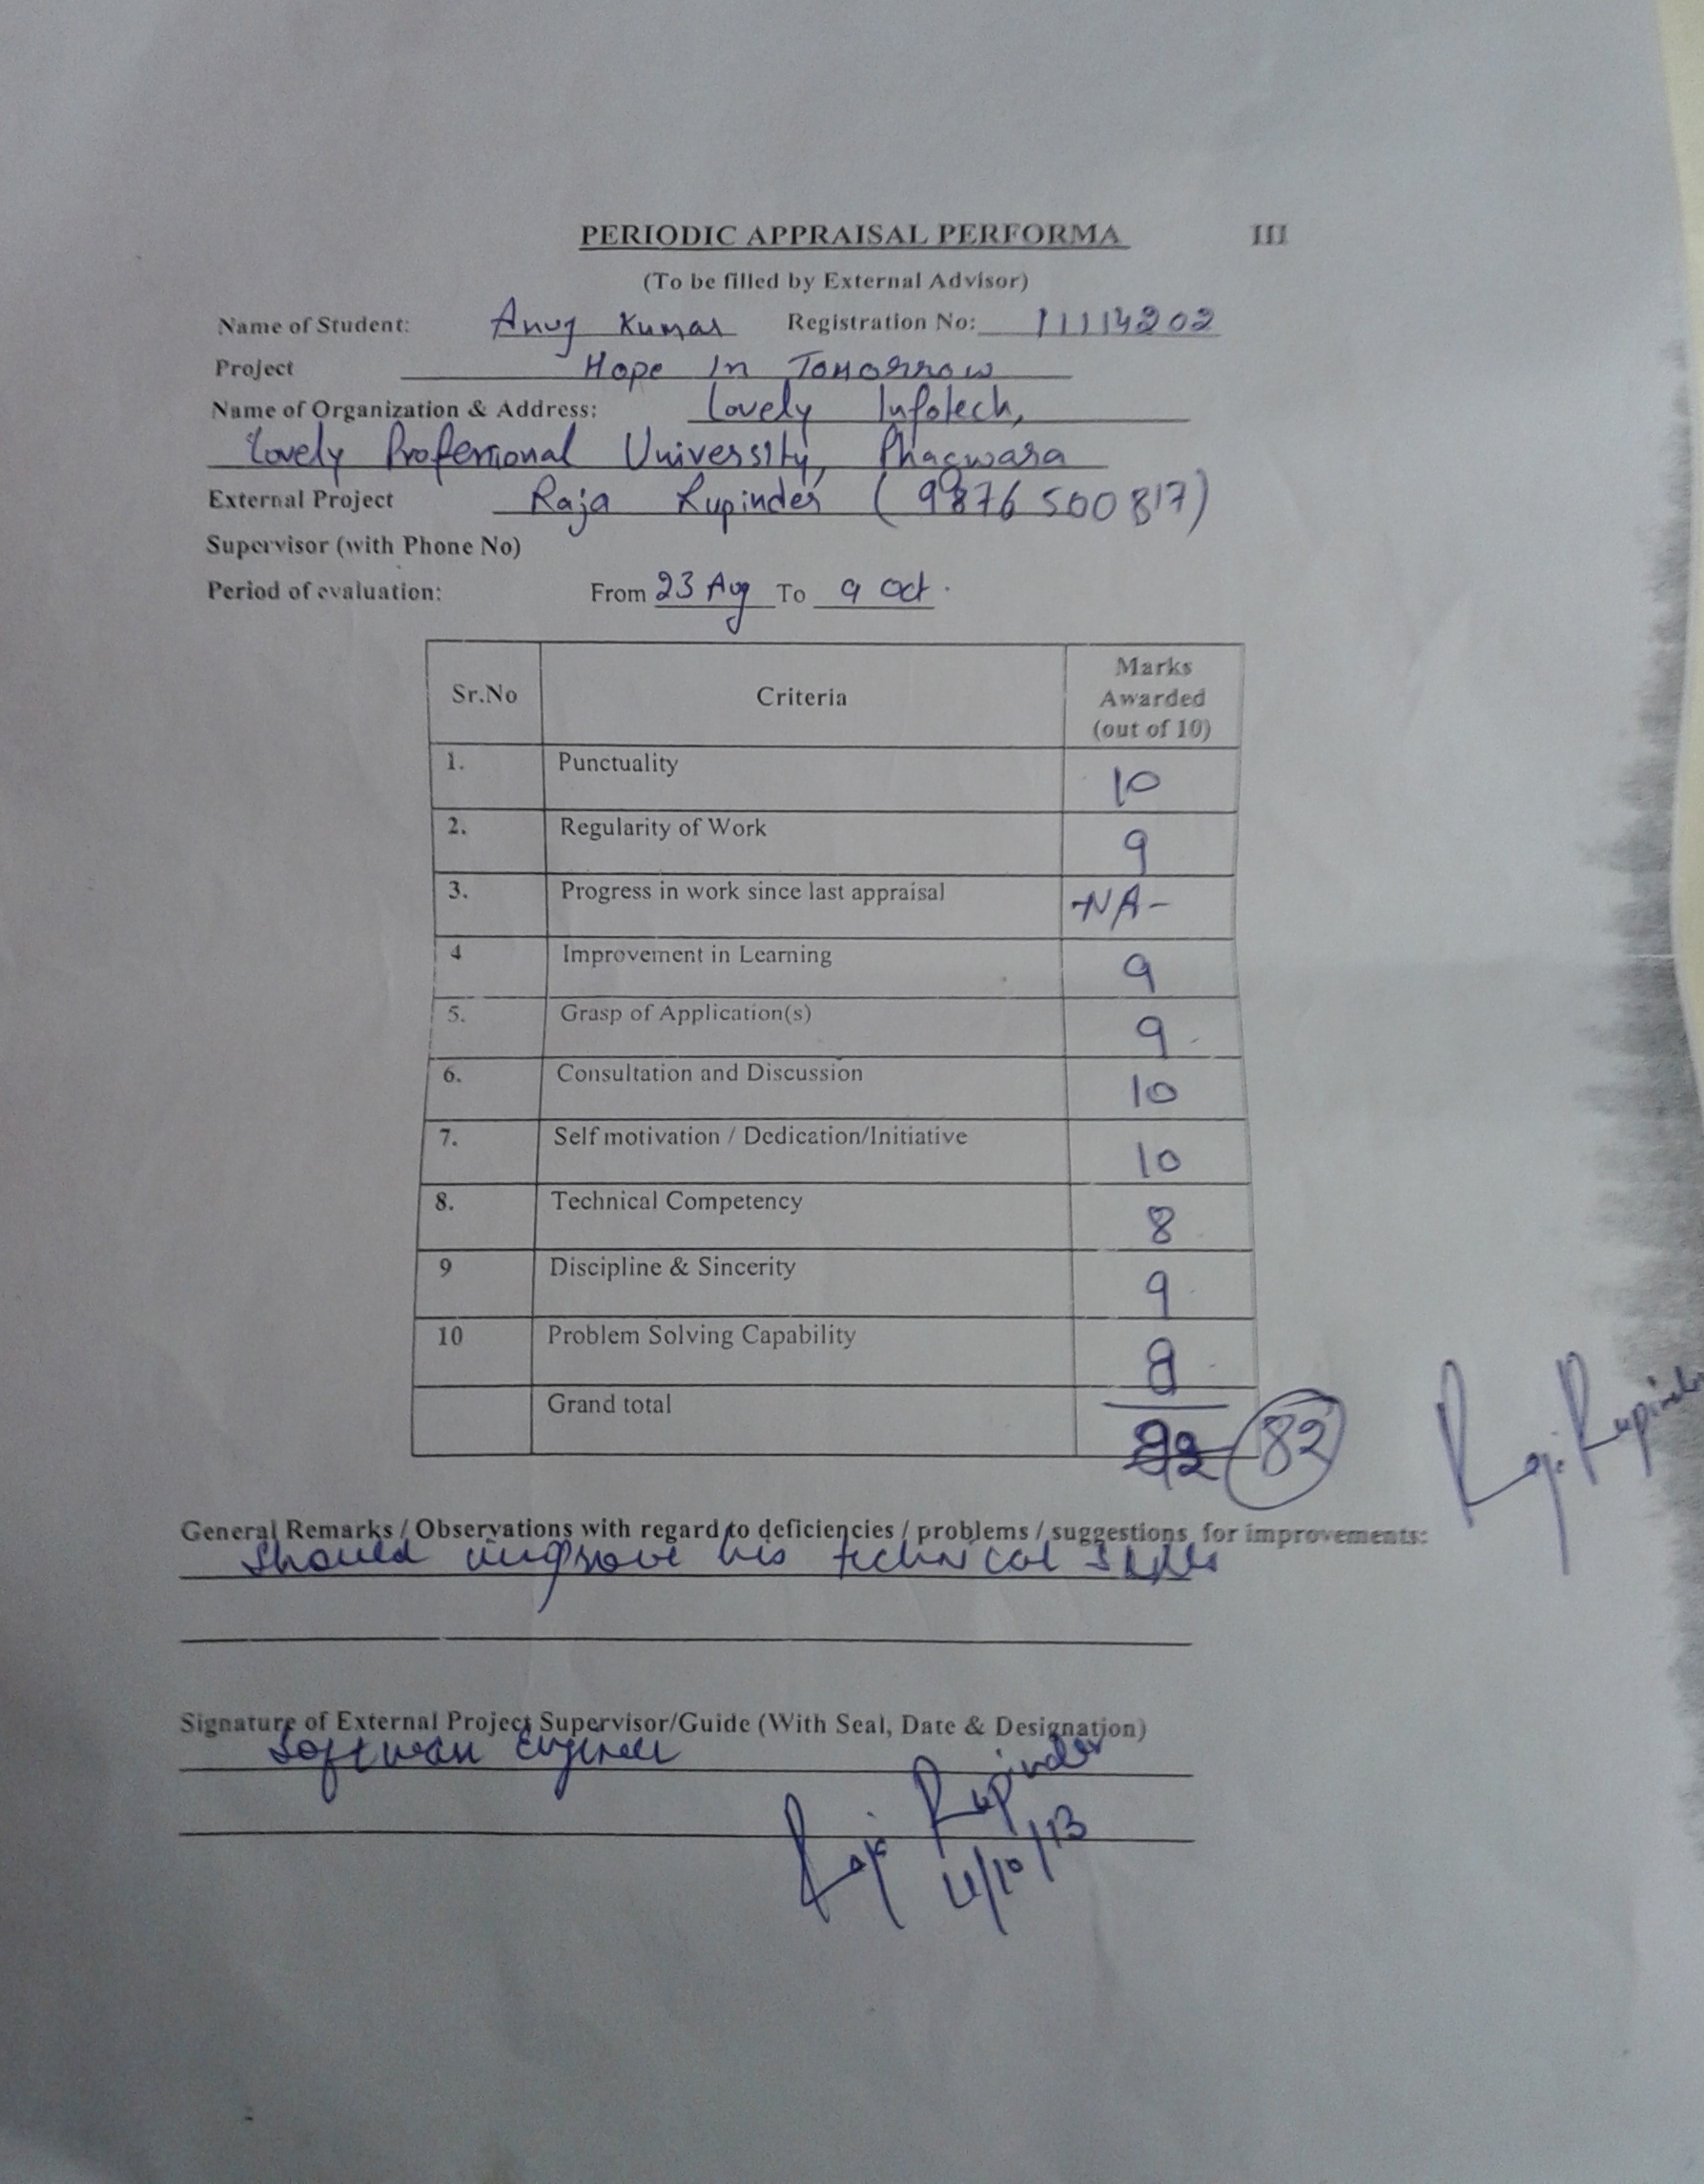 PERIODIC APPRAISAL PERFORMA III
(To be filled by External Advisor)
Name of Student: Anuj Kumar Registration No: 11114202
Project Hope In Tomorrow
Name of Organization & Address: Lovely Infotech,
Lovely Professional University, Phagwara
External Project Raja Rupinder (9876500817)
Supervisor (with Phone No)
Period of evaluation: From 23 Aug To 9 Oct.
Sr.No Criteria Marks Awarded (out of 10)
1. Punctuality 10
2. Regularity of Work 9
3. Progress in work since last appraisal -NA-
4 Improvement in Learning 9
5. Grasp of Application(s) 9
6. Consultation and Discussion 10
7. Self motivation / Dedication/Initiative 10
8. Technical Competency 8
9 Discipline & Sincerity 9
10 Problem Solving Capability 8
Grand total 82
Rupinder
General Remarks / Observations with regard to deficiencies / problems / suggestions for improvements:
Should improve his technical skills
Signature of External Project Supervisor/Guide (With Seal, Date & Designation)
Software Engineer
Rupinder